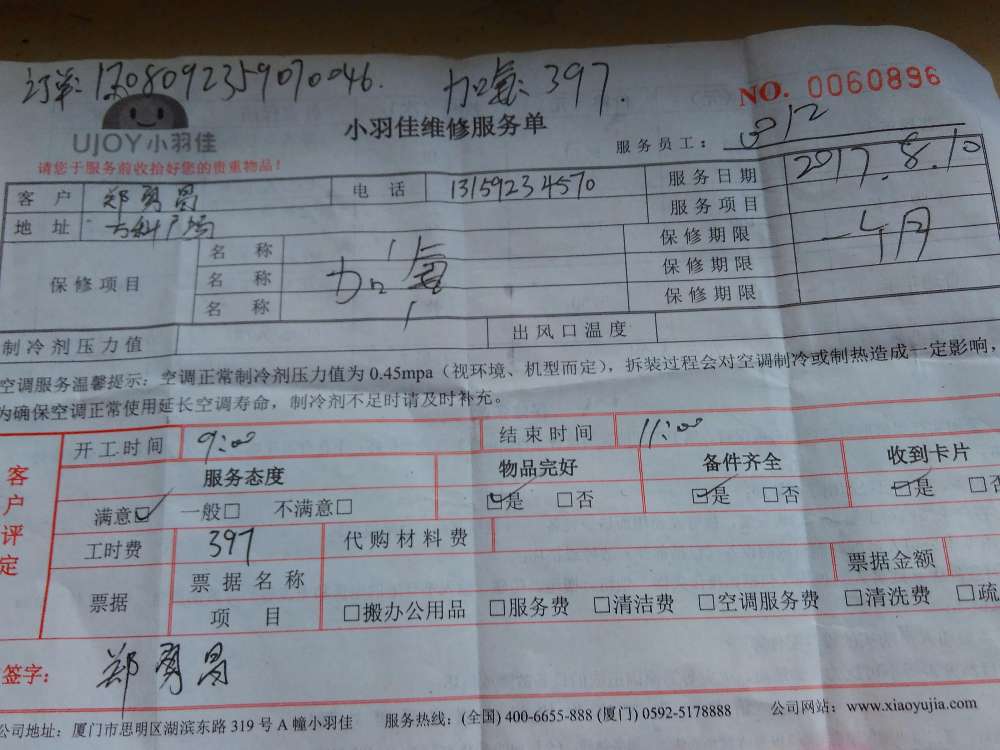 订单:1708092359070046. 加氨:397.
NO. 0060896
UJOY小羽佳
小羽佳维修服务单
服务员工: 0812
请您于服务前收拾好您的贵重物品!
客户 郑勇昌 电话 13159234570 服务日期 2017.8.10
地址 服务项目
保修项目 名称 保修期限 一个月
名称 加氨 保修期限
名称 保修期限
制冷剂压力值 出风口温度
空调服务温馨提示:空调正常制冷剂压力值为 0.45mpa(视环境、机型而定),拆装过程会对空调制冷或制热造成一定影响,
为确保空调正常使用延长空调寿命,制冷剂不足时请及时补充。
客户评定
开工时间 9:00 结束时间 11:00
服务态度 物品完好 备件齐全 收到卡片
满意☑ 一般□ 不满意□ ☑是 □否 ☑是 □否 ☑是 □否
工时费 397 代购材料费
票据 票据名称 票据金额
项目 □搬办公用品 □服务费 □清洁费 □空调服务费 □清洗费 □疏
签字: 郑勇昌
公司地址:厦门市思明区湖滨东路 319 号 A 幢小羽佳 服务热线:(全国) 400-6655-888 (厦门) 0592-5178888 公司网站:www.xiaoyujia.com